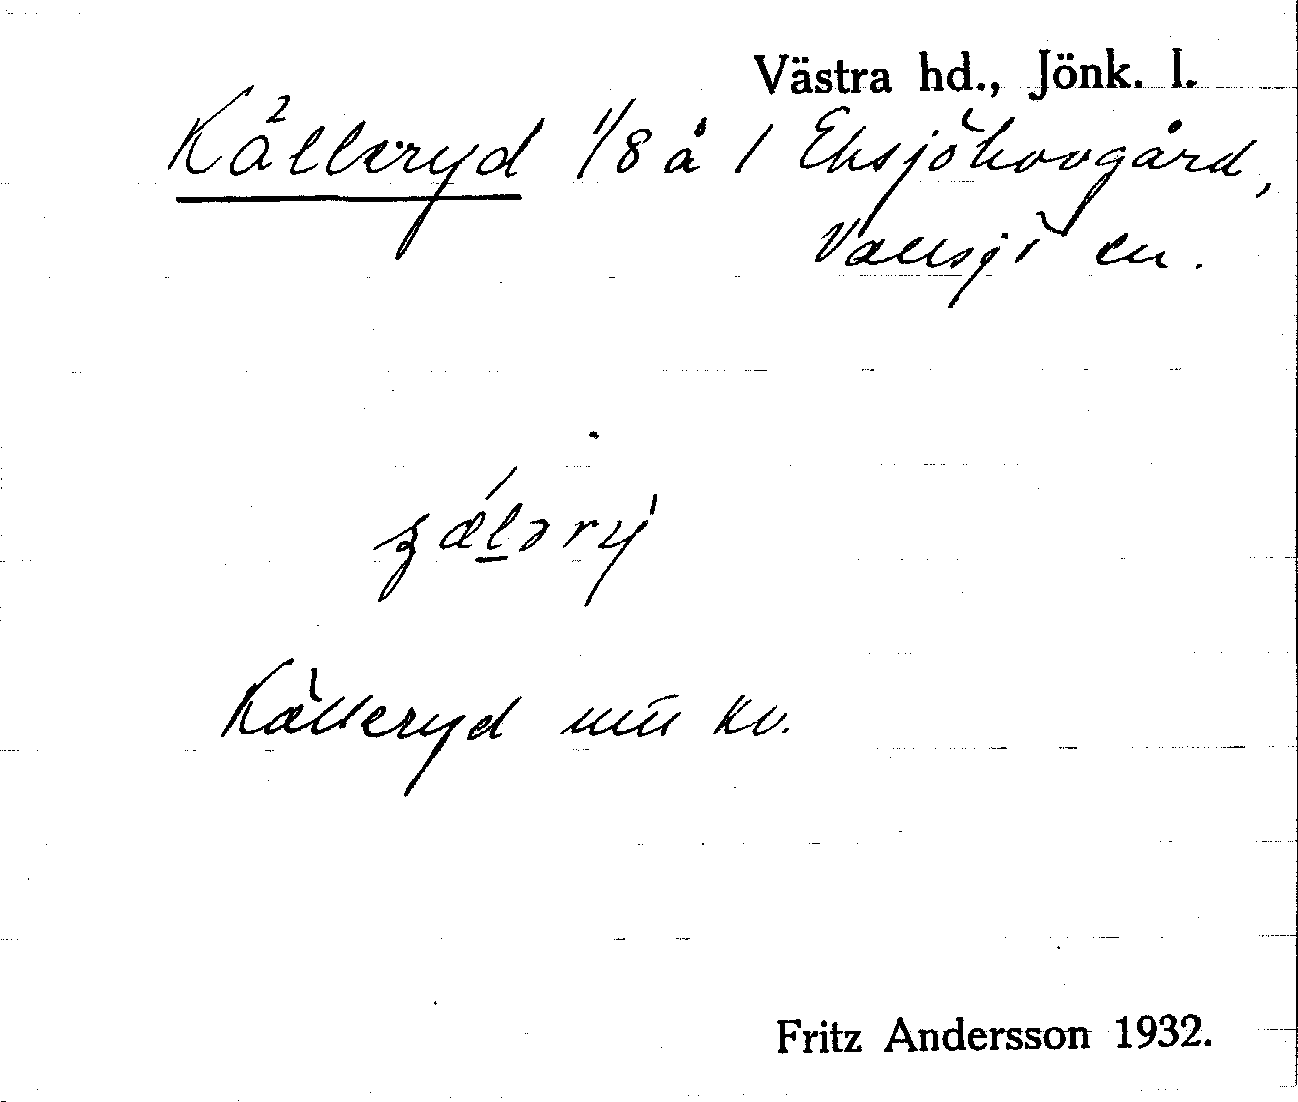 Västra hd., Jönk. l.
Källeryd 1/8 å 1 Eksjöhovgård,
Vallsjö sn.
Källeryd kv.
Fritz Andersson 1932.